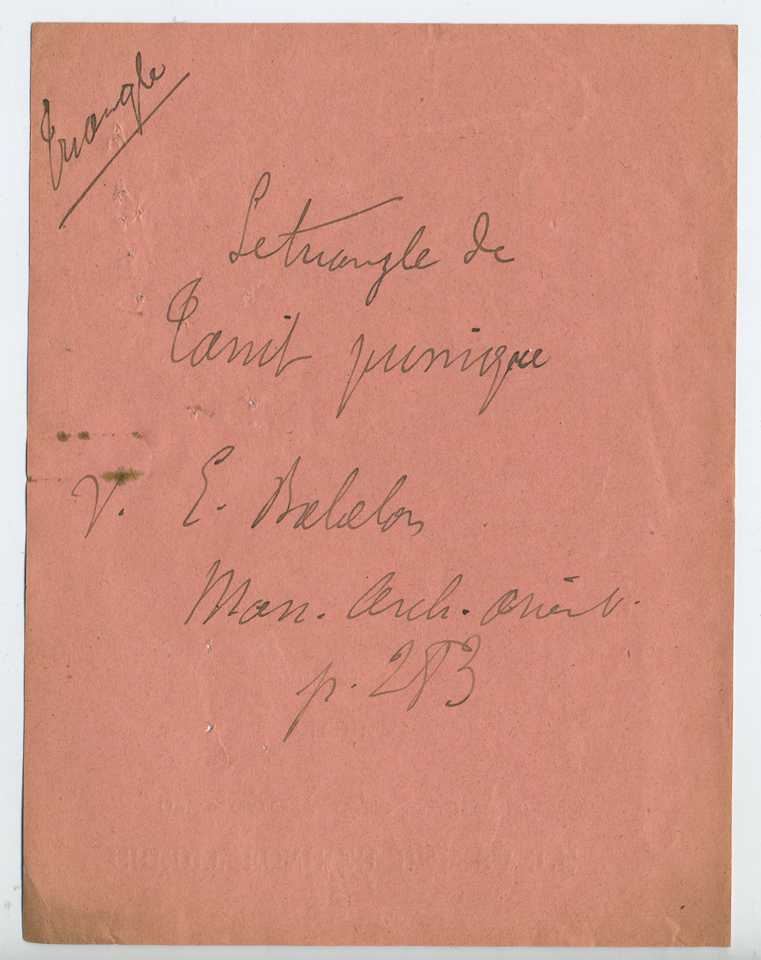 Triangle
Le triangle de
Tanit punique
V. E. Babelon
Man. Arch. orient.
p. 283